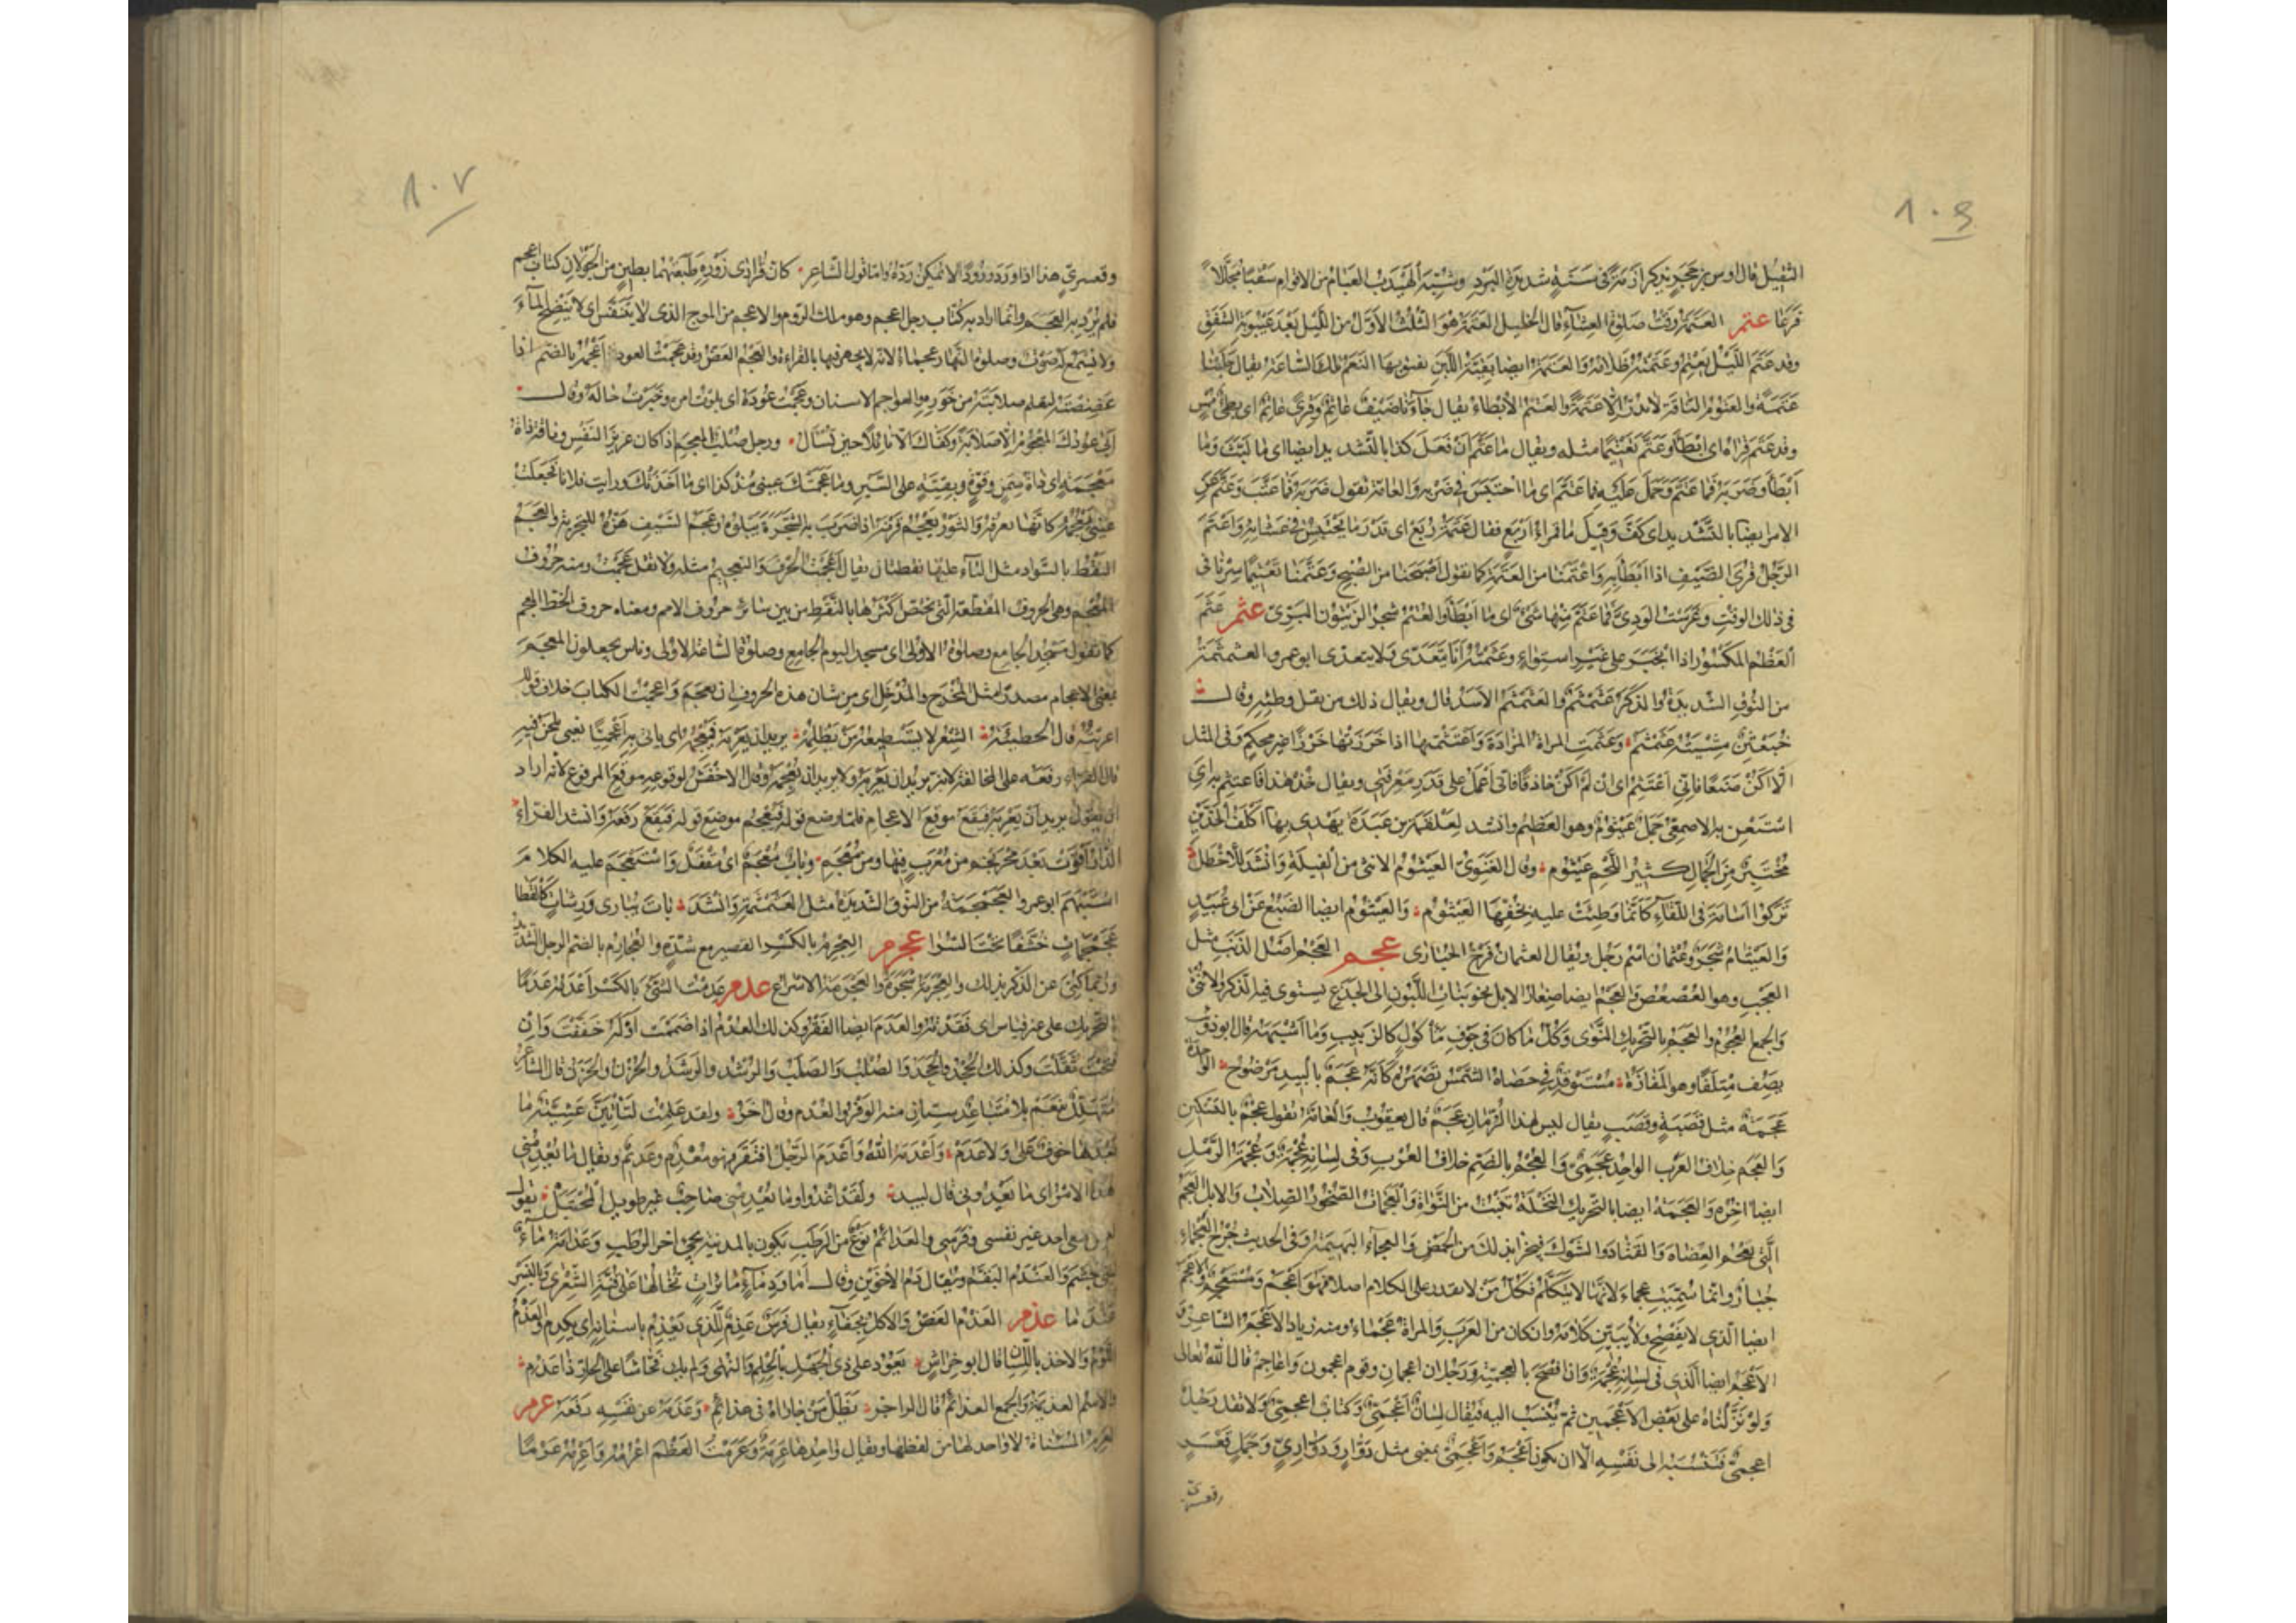 ١٠٦
الثقيل قال اوس بن حجر يذكر ازمة في سنة شديدة البرد وشبه الهيدب العبام من الاقوام سقبا مجللا
فرعا عتم العتمة وقت صلوة العشاء قال الخليل العتمة هو الثلث الاول من الليل بعد غيبوبة الشفق
وقد عتم الليل يعتم وعتمته ظلامه والعتمة ايضا بقية اللبن تفيق بها النعم تلك الساعة يقال حلبنا
عتمة والعتوم الناقة لا تدر الا عتمة والعتم الابطاء يقال جاءنا ضيف عاتم وقرى عاتم اى بطئ ممس
وقد عتم قراه اى ابطأ وعتم تعتيما مثله ويقال ما عتم ان فعل كذا بالتشديد ايضا اى ما لبث وما
ابطأ وضربه فما عتم وحمل عليه فما عتم اى ما احتبس في ضربه والعامة تقول ضربه فما عتب وعتم عن
الامر ايضا بالتشديد اى كف وقيل ما قمراء اربع فقال عتمة ربع اى قدر ما يحتبس في عشائه واعتم
الرجل قرى الضيف اذا ابطأ به واعتمنا من العتمة كما تقول اصبحنا من الصبح وعتمنا تعتيما سرنا في
في ذلك الوقت وغرست الودى فما عتم منها شئ اى ما ابطأ والعتم شجر الزيتون البرى عثم عثم
العظم المكسور اذا انجبر على غير استواء وعثمته انا يتعدى ولا يتعدى ابو عمرو العثمثمة
من النوق الشديدة والذكر عثمثم والعثمثم الاسد قال ويقال ذلك من ثقل وطئه وقال
خبعثن مشيته عثمثم وعثمت المراة المزادة واعتثمتها اذا خرزتها خرزا غير محكم وفى المثل
الا اكن صنعا فانى اعتثم اى ان لم اكن حاذقا فانى اعمل على قدر معرفتى ويقال خذ هذا فاعتثم به اى
استعن به الاصمعى جمل عيثوم وهو العظيم وانشد لعلقمة بن عبدة يهدى بها اكلف الخدين
مختبر من الجمال كثير اللحم عيثوم وقال الغنوى العيثوم الانثى من الفيلة وانشد للاخطل
تركوا اسامة في اللقاء كانما وطئت عليه بخفها العيثوم والعيثوم ايضا الضبع عن ابى عبيد
والعيثام شجر وعثمان اسم رجل ويقال العثمان فرخ الحبارى عجم العجم اصل الذنب مثل
العجب وهو العصعص والعجم ايضا صغار الابل نحو بنات اللبون الى الجذع يستوى فيه الذكر والانثى
والجمع العجوم والعجم بالتحريك النوى وكل ما كان في جوف مأكول كالزبيب وما اشبهه قال ابو ذؤيب
يصف متلفا وهو المفازة مستوقد في حصاه الشمس تصهره كانه عجم بالبيد مرضوخ الواحدة
عجمة مثل قصبة وقصب يقال ليس لهذا الرمان عجم قال يعقوب والعامة تقول عجم بالتسكين
والعجم خلاف العرب الواحد عجمى والعجم بالضم خلاف العرب وفى لسانه عجمة وعجمة الرمل
ايضا اخره والعجمة ايضا بالتحريك النخلة تنبت من النواة والعجمات الصخور الصلاب والابل العجم
التى تعجم العضاه والقتاد والشوك فيجزأ بذلك من الحمض والعجماء البهيمة وفى الحديث جرح العجماء
جبار وانما سميت عجماء لانها لا تتكلم فكل من لا يقدر على الكلام اصلا فهو اعجم ومستعجم والاعجم
ايضا الذى لا يفصح ولا يبين كلامه وان كان من العرب والمراة عجماء ومنه زياد الاعجم الشاعر و
الاعجم ايضا الذى في لسانه عجمة وان افصح بالعجمية ورجلان اعجمان وقوم اعجمون واعاجم قال الله تعالى
ولو نزلناه على بعض الاعجمين ثم ينسب اليه فيقال لسان اعجمى وكتاب اعجمى ولا تقل رجل
اعجمى فتنسبه الى نفسه الا ان يكون اعجم واعجمى بمعنى مثل دوار ودوارى وجمل قعسر
وقعسرى
١٠٧
وقعسرى هذا اذا ورد ورودا لا يمكن رده واما قول الشاعر كان قرادى زوره طبعتهما بطين من الجولان كتاب اعجم
فلم يرد به العجم وانما اراد به كتاب رجل اعجم وهو ملك الروم والاعجم من الموج الذى لا يتنفس اى لا ينضح الماء
ولا يسمع له صوت وصلوة النهار عجماء لانه لا يجهر فيها بالقراءة والعجم العض وقد عجمت العود اعجمه بالضم اذا
عضضته لتعلم صلابته من خوره والعواجم الاسنان وعجمت عوده اى بلوت امره وخبرت حاله وقال
ابى عودك المعجوم الا صلابة وكفاك الا نائلا حين تسأل ورجل صلب المعجم اذا كان عزيز النفس وناقة ذات
معجمة اى ذات سمن وقوة وبقية على السير وما عجمتك عينى منذ كذا اى ما اخذتك ورايت فلانا فجعلت
عينى تعجمه كانها تعرفه والثور يعجم قرنه اذا ضرب به الشجرة يبلوه وعجم السيف هزه للتجربة والعجم
النقط بالسواد مثل التاء عليها نقطتان يقال اعجمت الحرف والتعجيم مثله ولا تقل عجمت ومنه حروف
المعجم وهى الحروف المقطعة التى يختص اكثرها بالنقط من بين سائر حروف الامم ومعناه حروف الخط المعجم
كما تقول مسجد الجامع وصلوة الاولى اى مسجد اليوم الجامع وصلوة الساعة الاولى وناس يجعلون المعجم
بمعنى الاعجام مصدرا مثل المخرج والمدخل اى من شان هذه الحروف ان تعجم واعجمت الكتاب خلاف قولك
اعربته قال الحطيئة الشعر لا يسطيعه من يظلمه يريد ان يعربه فيعجمه اى ياتى به اعجميا يعنى يلحن فيه
قال الفراء رفعه على المخالفة لانه يريد ان يعربه ولا يريد ان يعجمه وقال الاخفش لوقوعه موقع المرفوع لانه اراد
ان يقول يريد ان يعربه فيقع موقع الاعجام فلما وضع قوله فيعجمه موضع قوله فيقع رفعه وانشد الفراء
الدار اقوت بعد محرنجم من معرب فيها ومن معجم وباب معجم اى مقفل واستعجم عليه الكلام
استبهم ابو عمرو العجمجمة من النوق الشديدة مثل العثمثمة وانشد بات يبارى ورشات كالقطا
عجمجمات خشفا تحت السرا عجرم العجرم بالكسر القصير مع شدة والعجارم بالضم الرجل الشديد
وربما كنى عن الذكر بذلك والعجرمة شجرة والعجرمة الاسراع عدم عدمت الشئ بالكسر اعدمه عدما
بالتحريك على غير قياس اى فقدته والعدم ايضا الفقر وكذلك العدم اذا ضممت اوله خففت وان
فتحت ثقلت وكذلك الجحد والجحد والصلب والصلب والرشد والرشد والحزن والحزن قال الشاعر
متهلل بنعم بلا متباعد سيان منه الوفر والعدم وقال اخر ولقد علمت لتأتين عشية ما
بعدها خوف على ولا عدم واعدمه الله واعدم الرجل افتقر فهو معدم وعديم ويقال ما يعدمنى
هذا الامر اى ما يعدونى قال لبيد ولقد اغدو وما يعدمنى صاحب غير طويل المحتبل يقول
ليس معى احد غير نفسى وفرسى والعدائم نوع من الرطب يكون بالمدينة يجئ اخر الرطب وعدامة ماء
لبنى جشم والعندم البقم ويقال دم الاخوين وقال اما ودماء مائرات تخالها على قنة العزى وبالنسر
عندما عذم العذم العض والاكل بجفاء يقال فرس عذم للذى يعذم باسنانه اى يكدم والعذم
اللوم والاخذ باللسان قال ابو خراش يعود على ذى الجهل بالحلم والنهى ولم يك فحاشا على الجار ذا عذم
والاسم العذيمة والجمع العذائم قال الراجز يظل من جاراه في عذائم وعذمه عن نفسه دفعه عرم
العرم المسناة لا واحد لها من لفظها ويقال واحدها عرمة وعرمت العظم اعرمه واعرمه عرما